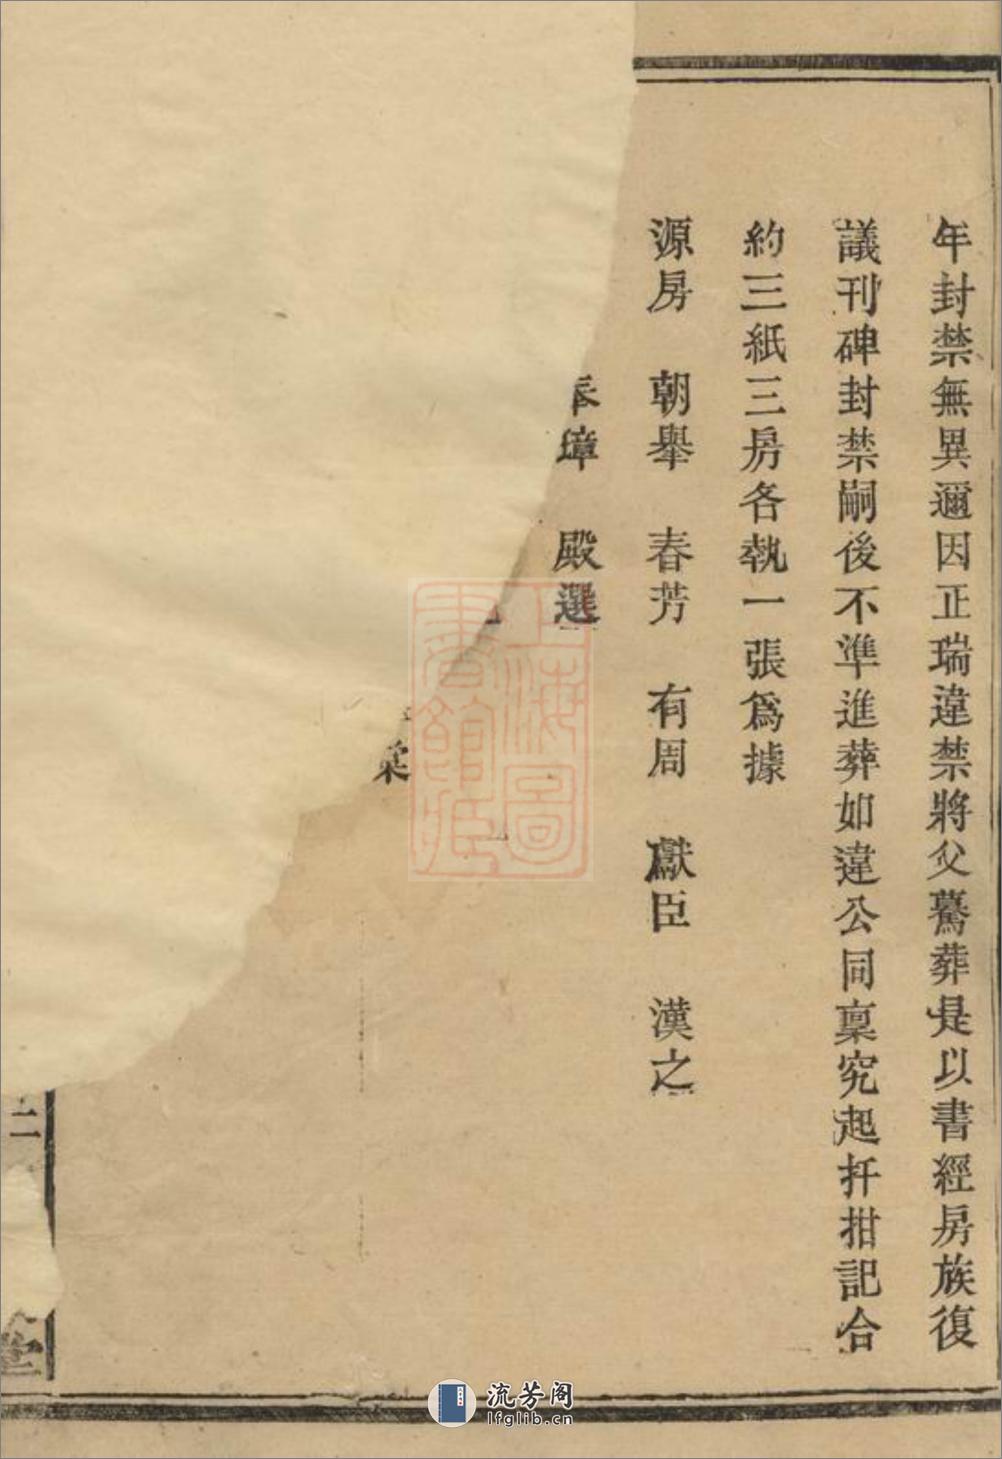 年封禁無異邇因正瑞違禁將父驀葬是以書經房族復
議刊碑封禁嗣後不準進葬如違公同稟究起扦拑記合
約三紙三房各執一張爲據
源房　朝舉　春芳　有周　獻臣　漢之
奉璋　殿選
棠
二
堂
上海圖書館藏
流芳阁
lfglib.cn